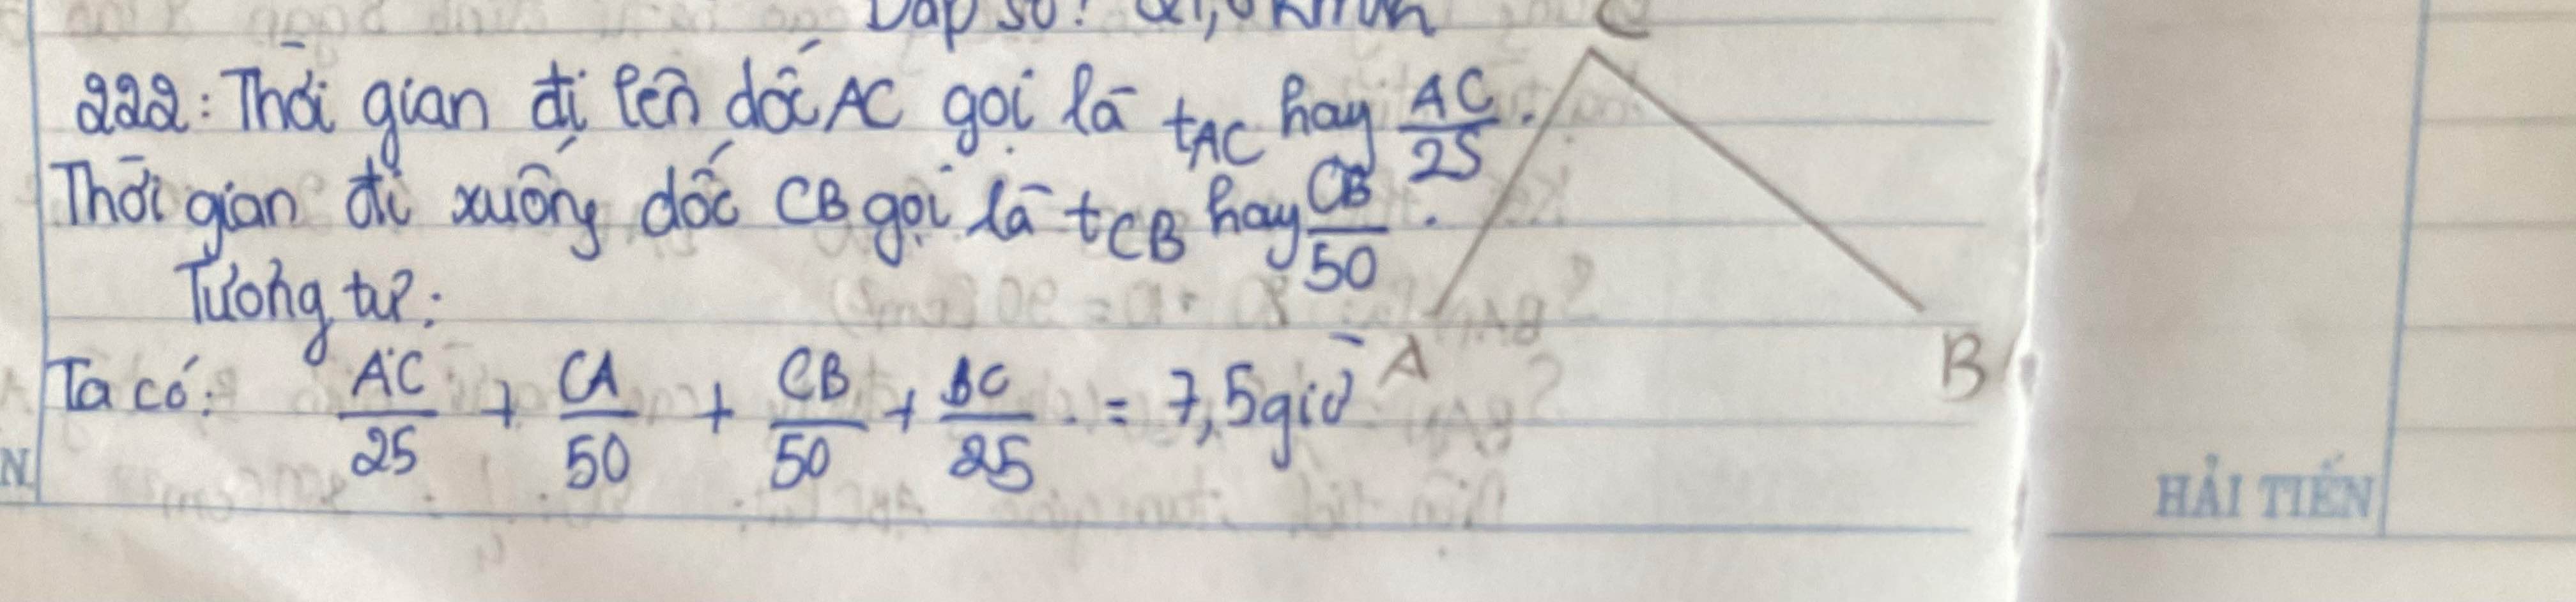 Đáp số:
222: Thời gian đi lên dốc AC gọi là tAC hay AC/25.
Thời gian đi xuống dốc CB gọi là tCB hay CB/50.
Tương tự:
Ta có: AC/25 + CA/50 + CB/50 + BC/25 = 7,5 giờ
C
A
B
N
HẢI TIẾN